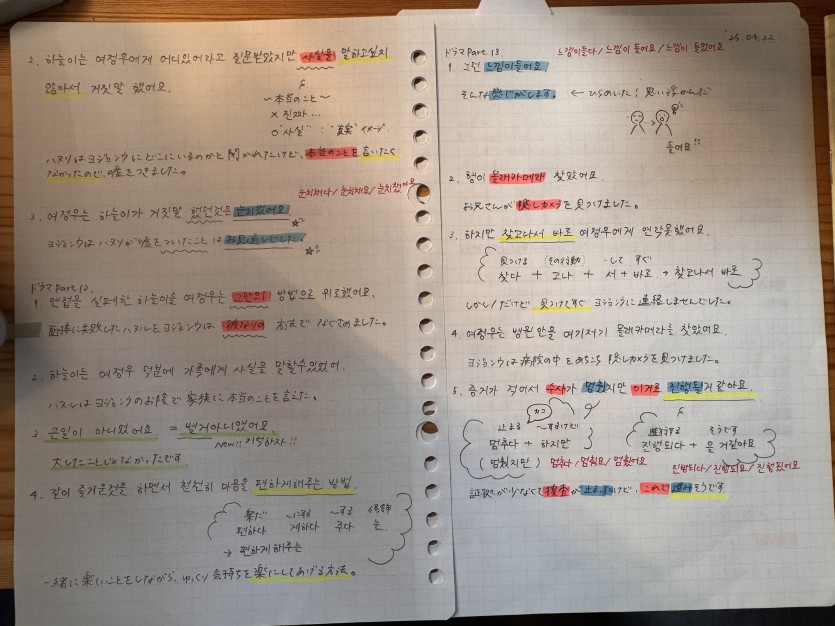 2. 하늘이는 여정우에게 어디있어라고 질문받았지만 사실을 말하고싶지
않아서 거짓말 했어요.
~本当のこと~
× 진짜...
○ "사실" : "真実" イメージ
ハヌリはヨジョンウにどこにいるのかと聞かれたけど、本当のことを言いたく
なかったので、嘘をつきました。
눈치채다/눈치채요/눈치챘어요
3. 여정우는 하늘이가 거짓말 했던것은 눈치챘어요.
ヨジョンウはハヌリが嘘をついたことはお見通しでした。
ドラマ Part 12.
1 면접을 실패한 하늘이을 여정우는 그만의 방법으로 위로했어요.
面接に失敗したハヌルをヨジョンウは彼なりの方法でなぐさめました。
2. 하늘이는 여정우 덕분에 가족에게 사실을 말할수있었어.
ハヌルはヨジョンウのお陰で家族に本当のことを言えた。
3 큰일이 아니었어요 = 별거아니었어요
New!! 기억하자!!
大したことじゃなかったです
4. 같이 즐거운것을 하면서 천천히 마음을 편하게해주는 방법.
楽だ ~にする ~する
편하다 게하다 주다 는.
→ 편하게 해주는
一緒に楽しいことをしながら、ゆっくり気持ちを楽にしてあげる方法。
25.04.22
ドラマ Part 13.
느낌이들다/느낌이 들어요/느낌이 들었어요
1. 그런 느낌이들어요.
そんな感じがします。 ← ひらめいた! 思い浮かんだ
들어요!!
2. 형이 몰래카메라 찾았어요.
お兄さんが隠しカメラを見つけました。
3. 하지만 찾고나서 바로 여정우에게 연락못했어요.
見つける (その行動) -して すぐ
찾다 + 고나 + 서 + 바로 → 찾고나서 바로
しかし/だけど 見つけてすぐ ヨジョンウに連絡しませんでした。
4. 여정우는 병원 안을 여기저기 몰래카메라를 찾았어요.
ヨジョンウは病院の中をあちこち隠しカメラを見つけました。
5. 증거가 적어서 수사가 멈췄지만 이거로 진행될거 같아요.
カコ
止まる ~するけど
멈추다 + 하지만
(멈췄지만) 멈추다/멈춰요/멈췄어요
進行する そうです
진행되다 + 을 거같아요
진행되다/진행되요/진행됬어요
証拠が少なくて捜査が止まったけど、これで進みそうです